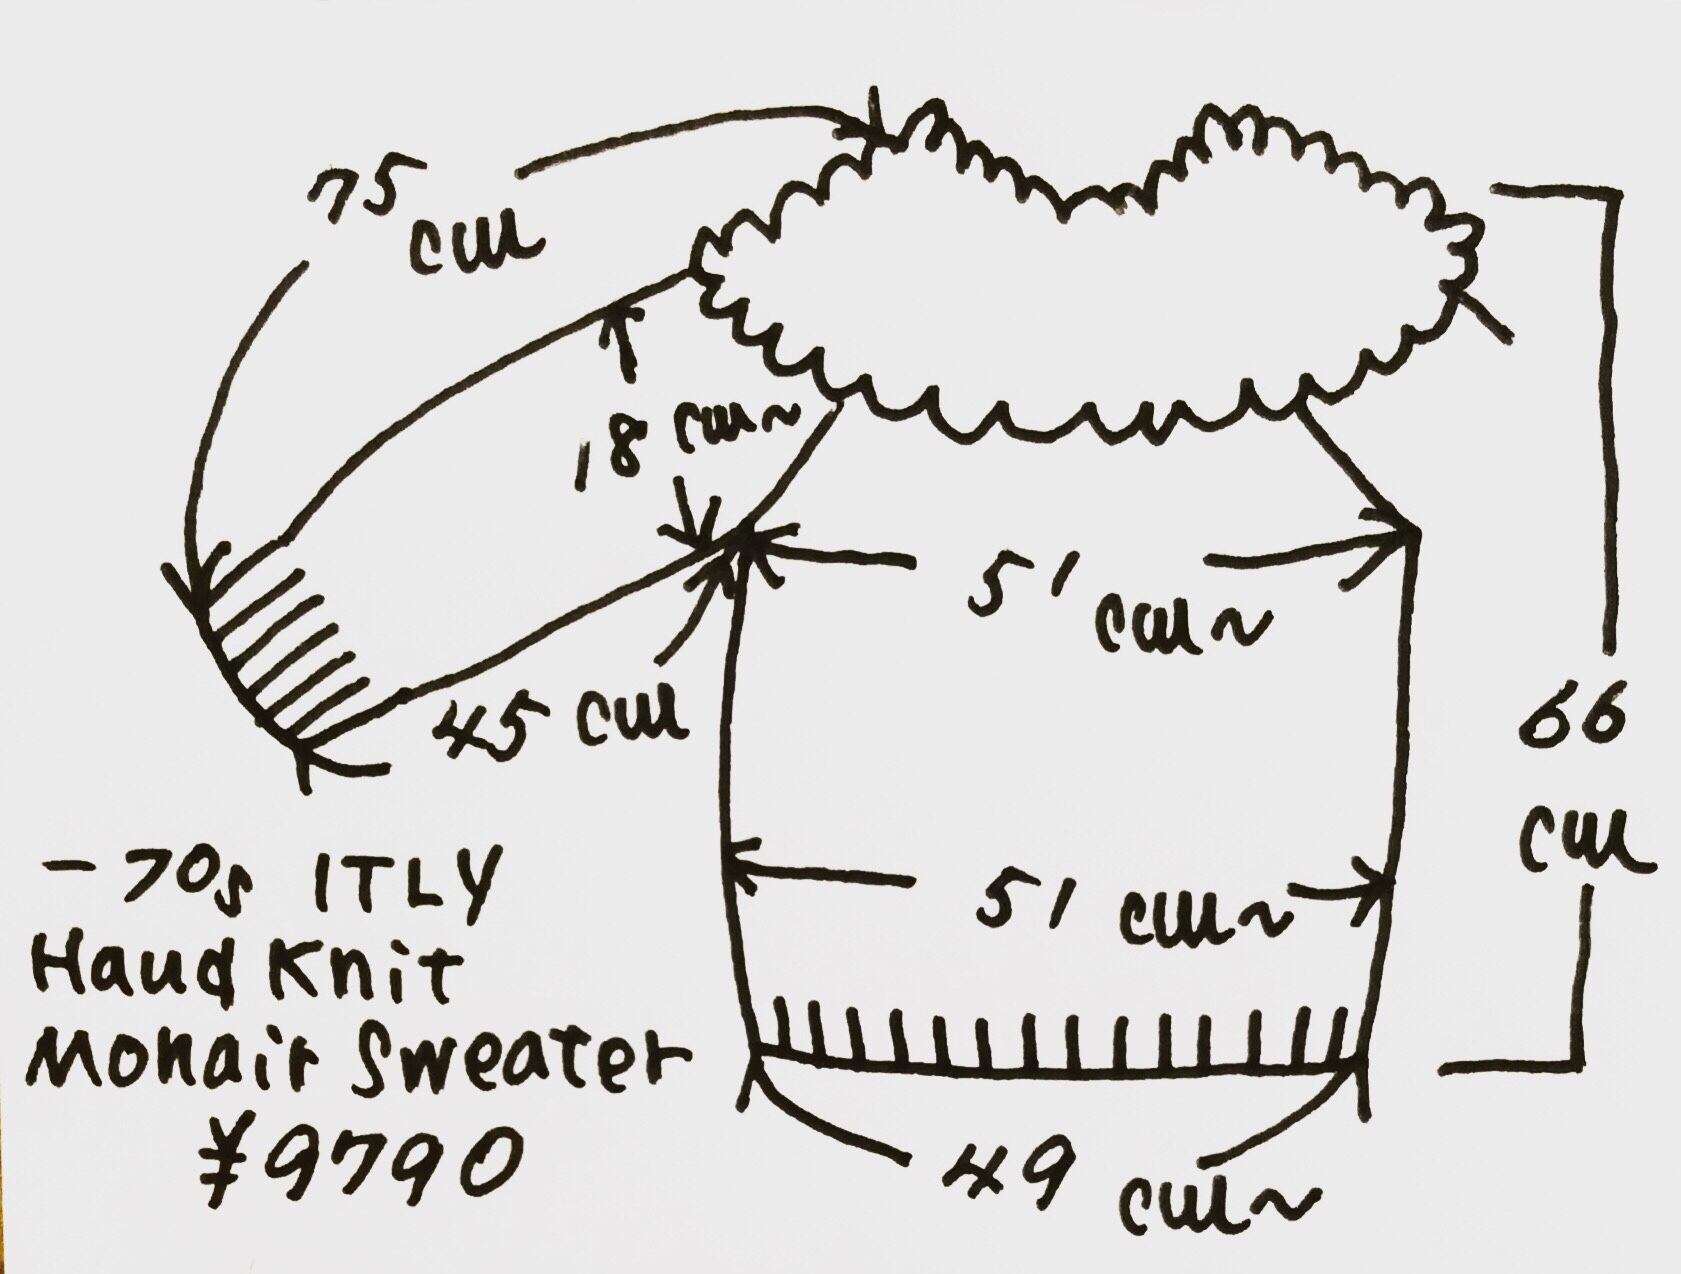 75
cm
18 cm~
51
cm~
45 cm
66
cm
51 cm~
-70s ITLY
Hand Knit
Mohair Sweater
¥9790
49
cm~